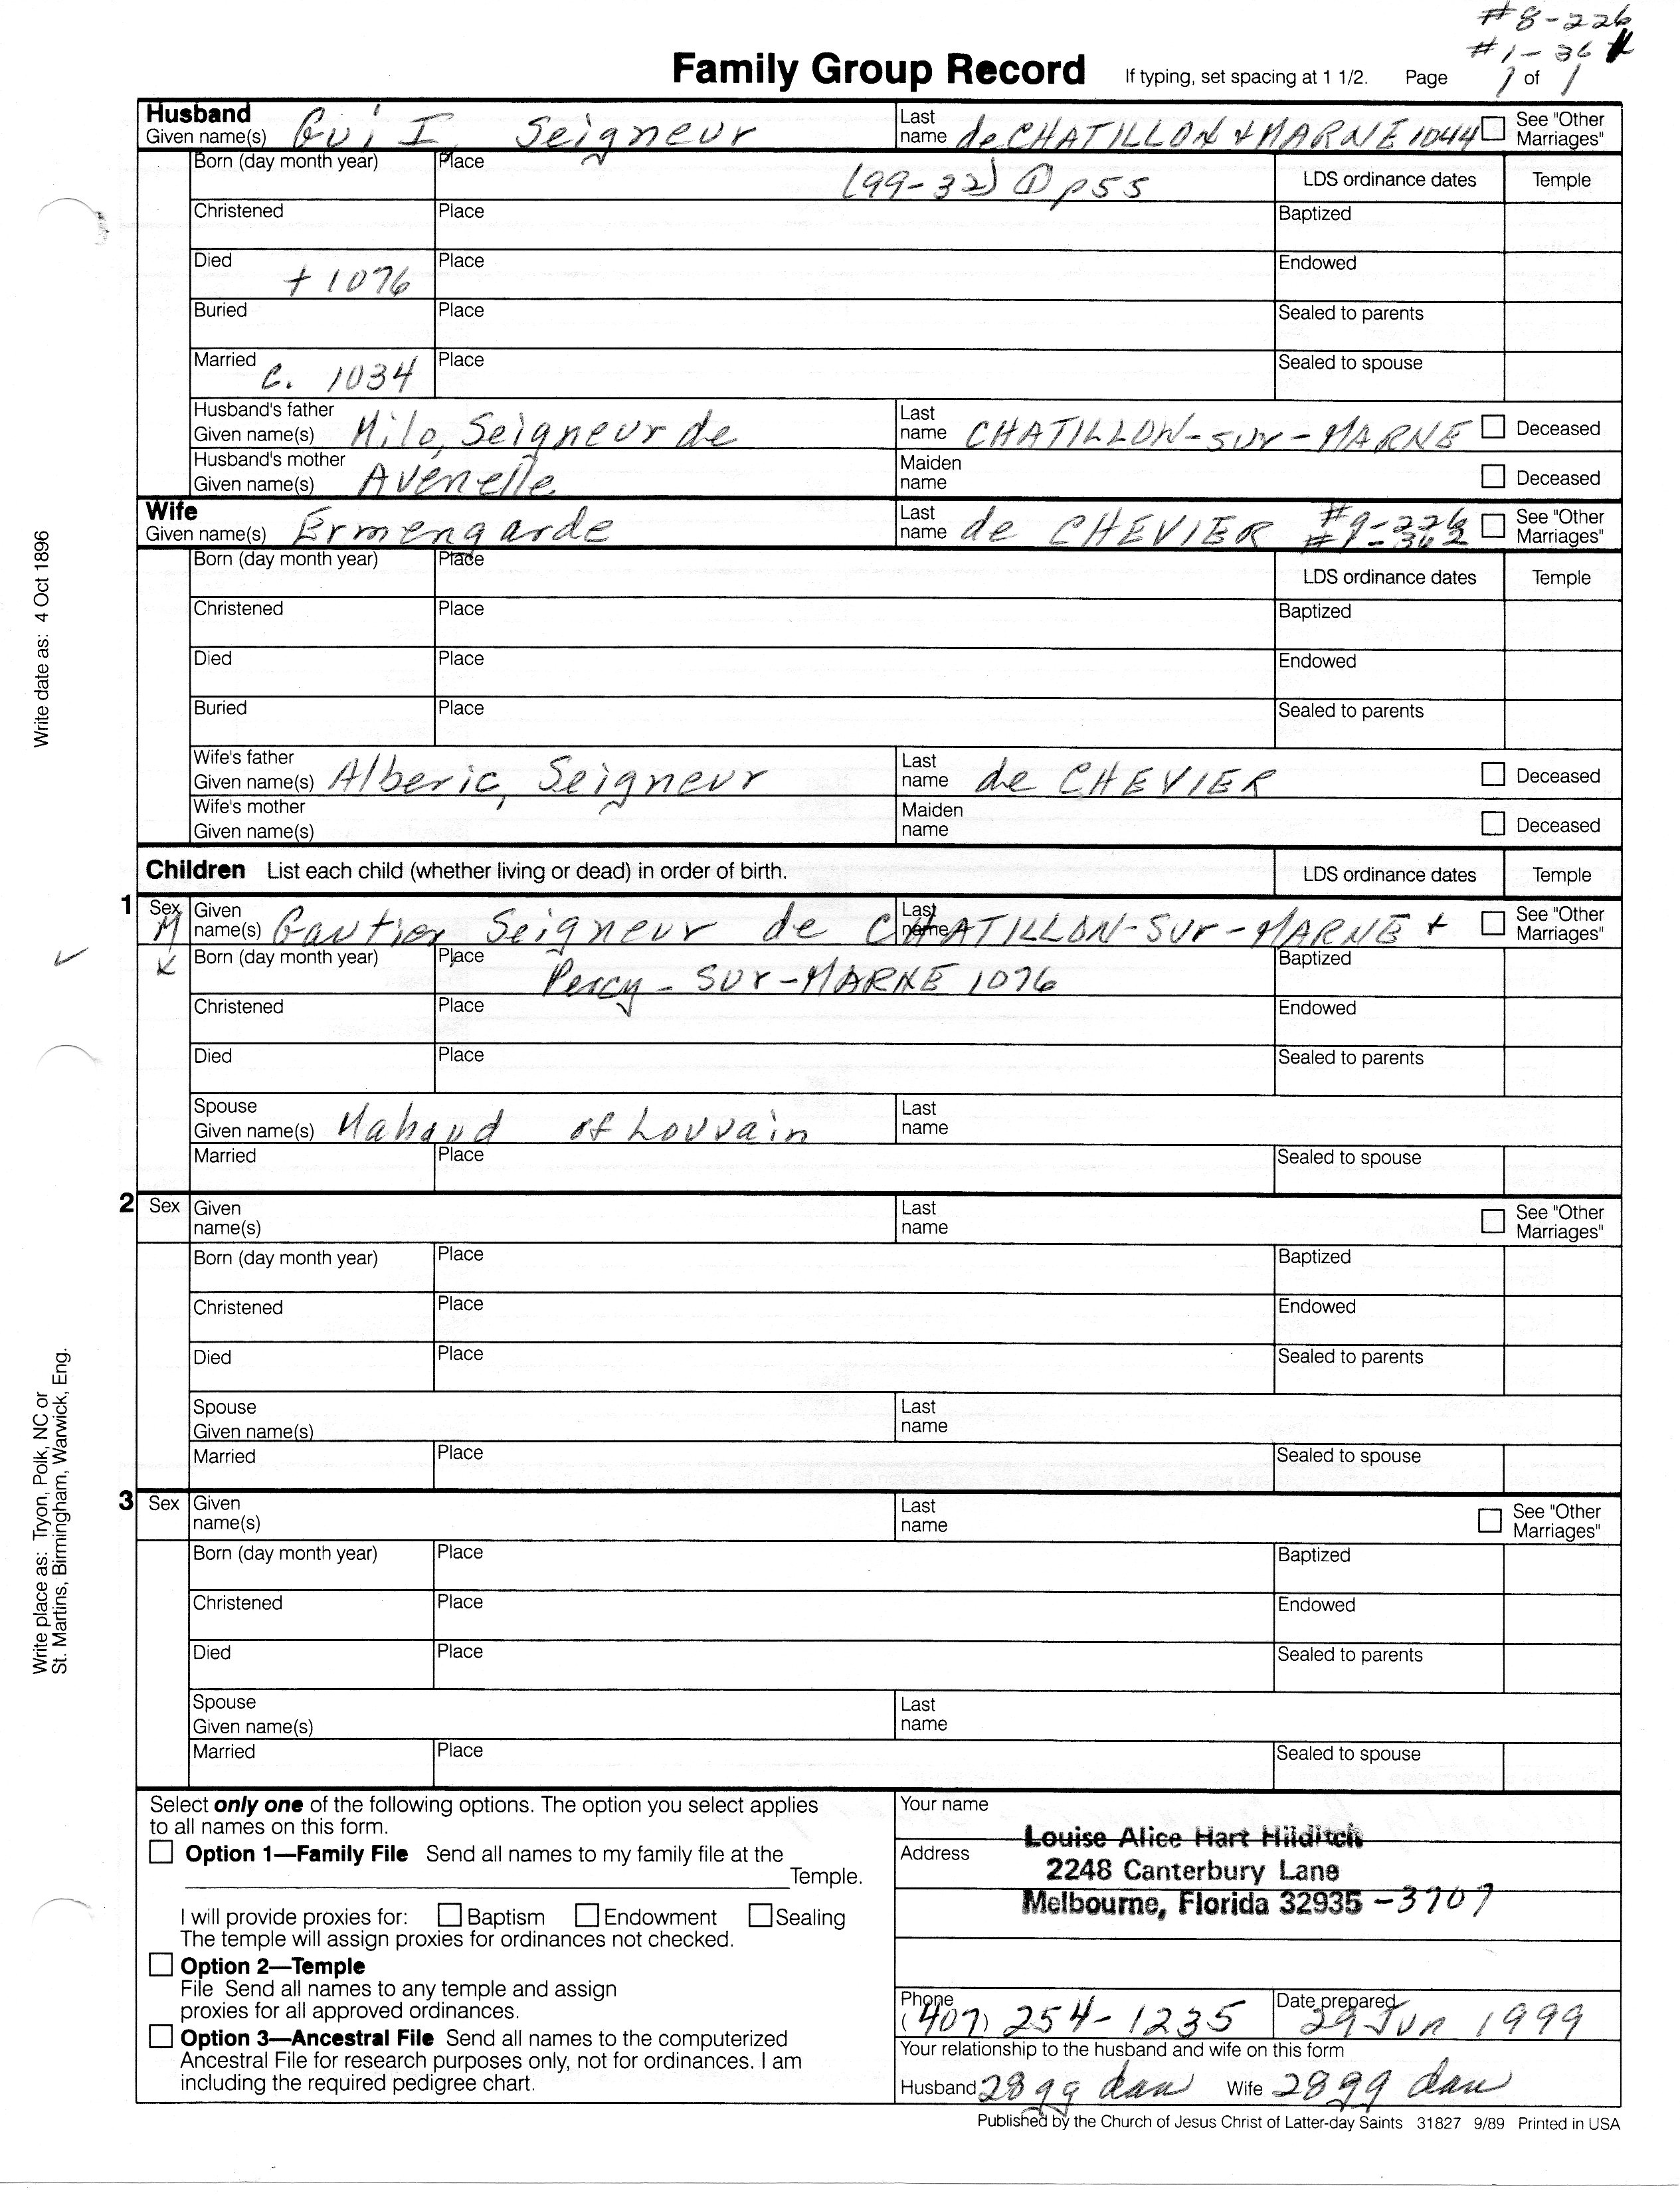 #8-226
#1-36
Family Group Record If typing, set spacing at 1 1/2. Page 1 of 1
Husband
Given name(s) Gui I Seigneur Last name de CHATILLON + MARNE 1044 See "Other Marriages"
Born (day month year) Place (99-32) ① p55 LDS ordinance dates Temple
Christened Place Baptized
Died + 1076 Place Endowed
Buried Place Sealed to parents
Married c. 1034 Place Sealed to spouse
Husband's father
Given name(s) Milo, Seigneur de Last name CHATILLON-sur-MARNE Deceased
Husband's mother
Given name(s) Avenelle Maiden name Deceased
Wife
Given name(s) Ermengarde Last name de CHEVIER #9-226 #1-362 See "Other Marriages"
Born (day month year) Place LDS ordinance dates Temple
Christened Place Baptized
Died Place Endowed
Buried Place Sealed to parents
Wife's father
Given name(s) Alberic, Seigneur Last name de CHEVIER Deceased
Wife's mother
Given name(s) Maiden name Deceased
Children List each child (whether living or dead) in order of birth. LDS ordinance dates Temple
1 Sex M Given name(s) Gautier Seigneur de Last name CHATILLON-sur-MARNE + See "Other Marriages"
Born (day month year) Place Percy-sur-MARNE 1076 Baptized
Christened Place Endowed
Died Place Sealed to parents
Spouse
Given name(s) Mahaud of Louvain Last name
Married Place Sealed to spouse
2 Sex Given name(s) Last name See "Other Marriages"
Born (day month year) Place Baptized
Christened Place Endowed
Died Place Sealed to parents
Spouse
Given name(s) Last name
Married Place Sealed to spouse
3 Sex Given name(s) Last name See "Other Marriages"
Born (day month year) Place Baptized
Christened Place Endowed
Died Place Sealed to parents
Spouse
Given name(s) Last name
Married Place Sealed to spouse
Write date as: 4 Oct 1896
Write place as: Tryon, Polk, NC or
St. Martins, Birmingham, Warwick, Eng.
Select only one of the following options. The option you select applies
to all names on this form.
Option 1—Family File Send all names to my family file at the
Temple.
I will provide proxies for: Baptism Endowment Sealing
The temple will assign proxies for ordinances not checked.
Option 2—Temple
File Send all names to any temple and assign
proxies for all approved ordinances.
Option 3—Ancestral File Send all names to the computerized
Ancestral File for research purposes only, not for ordinances. I am
including the required pedigree chart.
Your name
Louise Alice Hart Hilditch
Address
2248 Canterbury Lane
Melbourne, Florida 32935 -3707
Phone (407) 254-1235 Date prepared 29 Jun 1999
Your relationship to the husband and wife on this form
Husband 28 gg dau Wife 28 gg dau
Published by the Church of Jesus Christ of Latter-day Saints 31827 9/89 Printed in USA